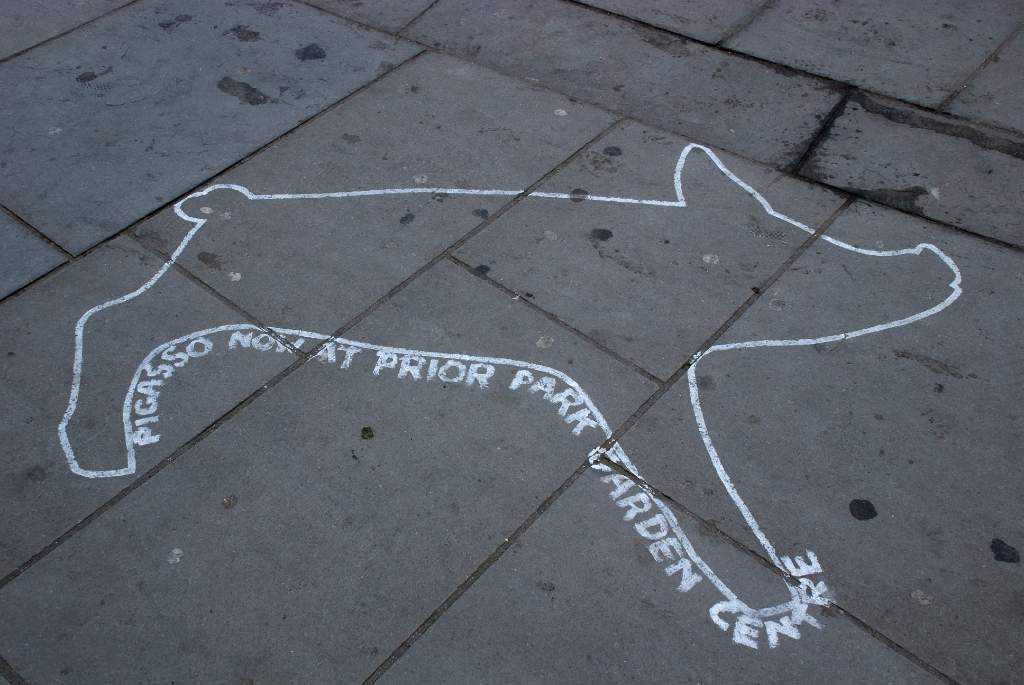 PIGASSO NOW AT PRIOR PARK GARDEN CENTRE